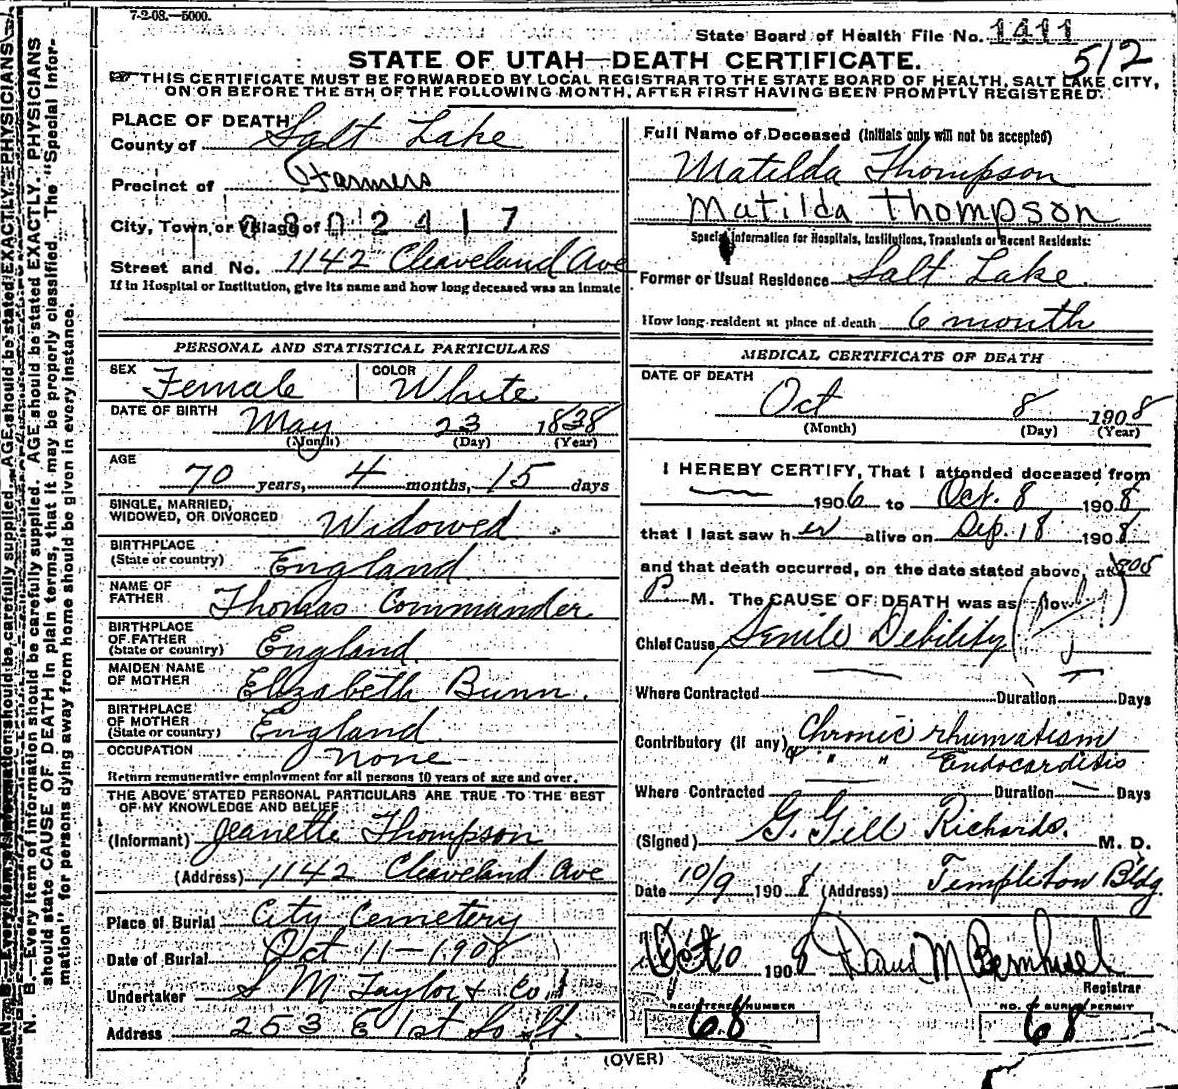 7-2-08.—5000.
State Board of Health File No. 1411
512
STATE OF UTAH—DEATH CERTIFICATE.
THIS CERTIFICATE MUST BE FORWARDED BY LOCAL REGISTRAR TO THE STATE BOARD OF HEALTH, SALT LAKE CITY,
ON OR BEFORE THE 5TH OF THE FOLLOWING MONTH, AFTER FIRST HAVING BEEN PROMPTLY REGISTERED.
N. B.—Every item of information should be carefully supplied. AGE should be stated EXACTLY. PHYSICIANS
should state CAUSE OF DEATH in plain terms, that it may be properly classified. The "Special Infor-
mation" for persons dying away from home should be given in every instance.
PLACE OF DEATH
County of Salt Lake
Precinct of Farmers
City, Town, or Village of 0 8 0 2 4 1 7
Street and No. 1142 Cleaveland Ave
If in Hospital or Institution, give its name and how long deceased was an inmate
PERSONAL AND STATISTICAL PARTICULARS
SEX Female COLOR White
DATE OF BIRTH May 23 1838
(Month) (Day) (Year)
AGE 70 years, 4 months, 15 days
SINGLE, MARRIED,
WIDOWED, OR DIVORCED Widowed
BIRTHPLACE
(State or country) England
NAME OF
FATHER Thomas Commander
BIRTHPLACE
OF FATHER
(State or country) England
MAIDEN NAME
OF MOTHER Elizabeth Bunn.
BIRTHPLACE
OF MOTHER
(State or country) England
OCCUPATION None
Return remunerative employment for all persons 10 years of age and over.
THE ABOVE STATED PERSONAL PARTICULARS ARE TRUE TO THE BEST
OF MY KNOWLEDGE AND BELIEF
(Informant) Jeanette Thompson
(Address) 1142 Cleaveland Ave
Place of Burial City Cemetery
Date of Burial Oct 11—1908
Undertaker S M Taylor & Co.
Address 253 E 1st So St.
Full Name of Deceased (Initials only will not be accepted)
Matilda Thompson
Matilda Thompson
Special Information for Hospitals, Institutions, Transients or Recent Residents:
Former or Usual Residence Salt Lake
How long resident at place of death 6 month
MEDICAL CERTIFICATE OF DEATH
DATE OF DEATH
Oct 8 1908
(Month) (Day) (Year)
I HEREBY CERTIFY, That I attended deceased from
1906 to Oct. 8 1908
that I last saw her alive on Sep. 18 1908
and that death occurred, on the date stated above, at 905
P M. The CAUSE OF DEATH was as follows
Chief Cause Senile Debility
Where Contracted Duration Days
Contributory (if any) Chronic rhumatism
" " Endocarditis
Where Contracted Duration Days
(Signed) G. Gill Richards. M. D.
Date 10/9 1908 (Address) Templeton Bldg.
Oct 10 1908
Registrar
REGISTERED NUMBER
68
NO. BURIAL PERMIT
68
(OVER)